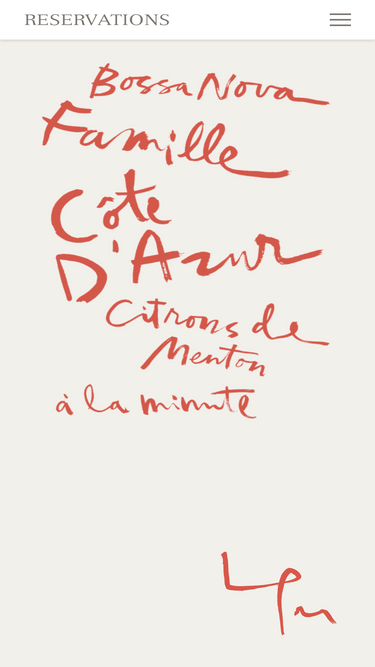 RESERVATIONS
Bossa Nova
Famille
Côte
D'Azur
Citrons de
Menton
à la minute